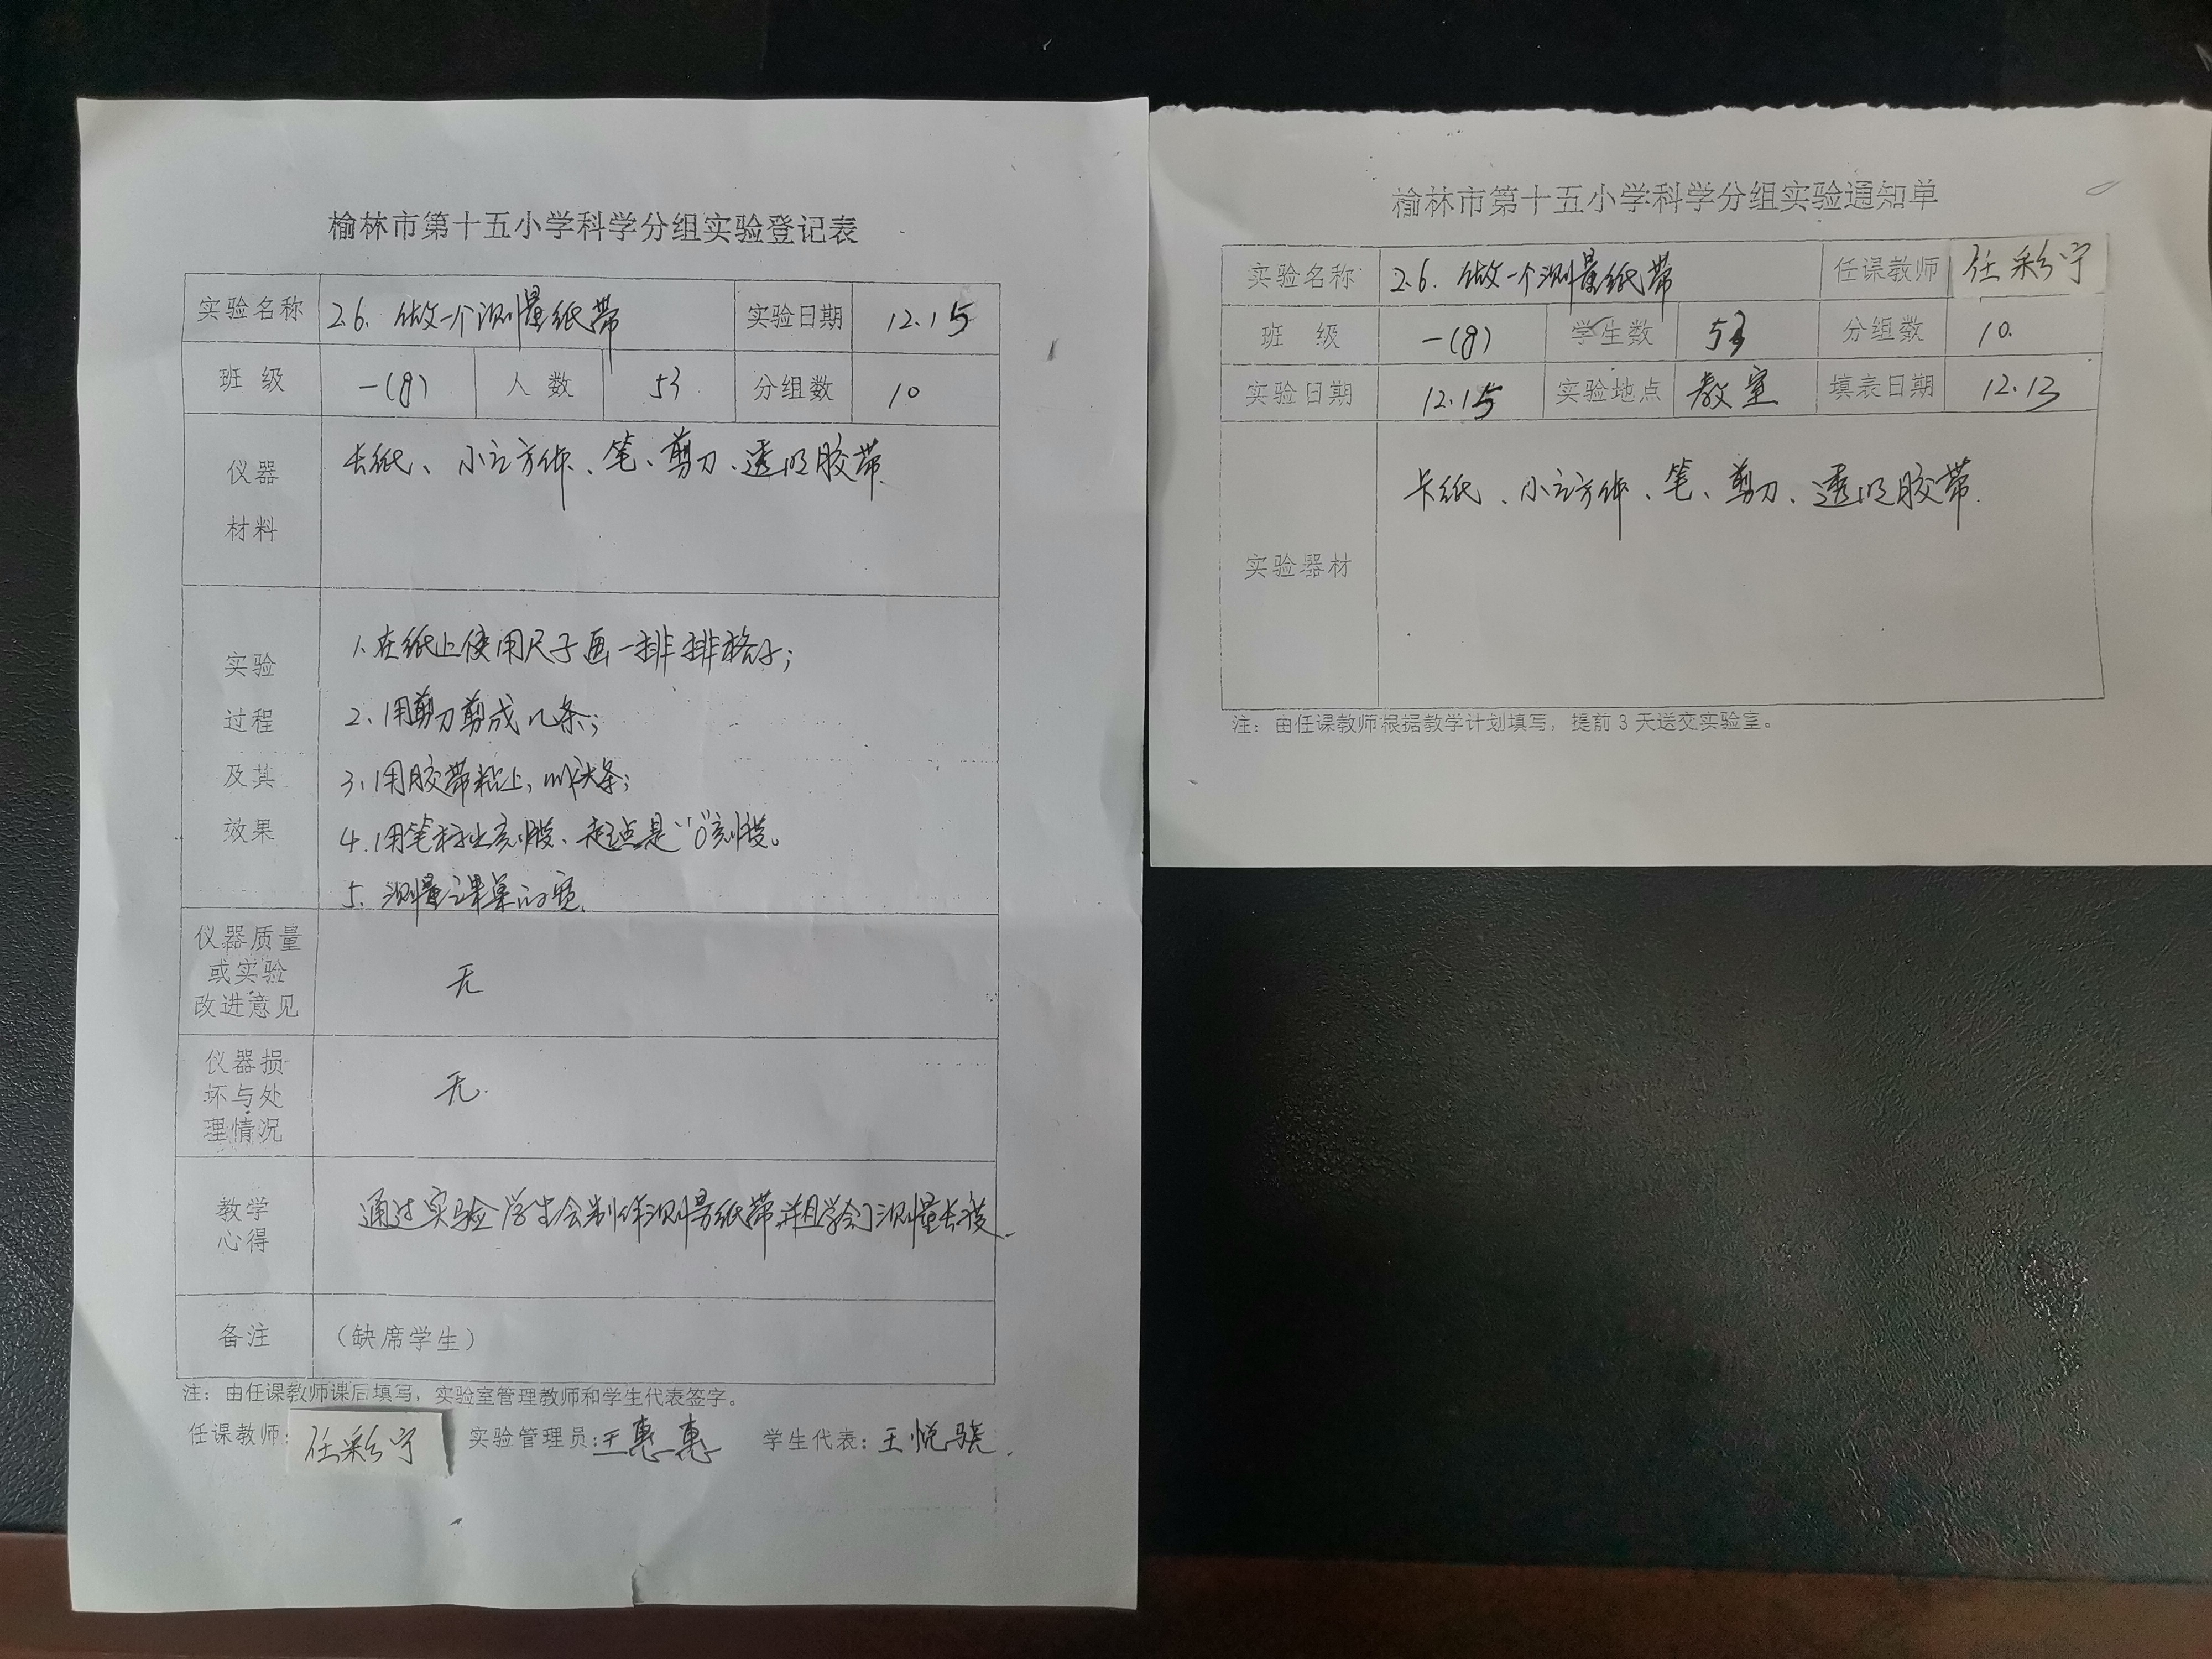 榆林市第十五小学科学分组实验登记表
实验名称 2.6. 做一个测量纸带 实验日期 12.15
班 级 一(8) 人 数 53 分组数 10
仪器
材料
卡纸、小立方体、笔、剪刀、透明胶带.
实验
过程
及其
效果
1.在纸上使用尺子画一排排格子;
2.用剪刀剪成几条;
3.用胶带粘上,
4.用笔标出刻度、起点是“0”刻度。
5. 测量课桌的宽.
仪器质量
或实验
改进意见
无
仪器损
坏与处
理情况
无.
教学
心得
通过实验学生会制作测量纸带,并且学会了测量长度.
备注 (缺席学生)
注: 由任课教师课后填写,实验室管理教师和学生代表签字。
任课教师: 任彩宁 实验管理员: 王惠惠 学生代表: 王悦
榆林市第十五小学科学分组实验通知单
实验名称 2.6. 做一个测量纸带 任课教师 任彩宁
班 级 一(8) 学生数 53 分组数 10.
实验日期 12.15 实验地点 教室 填表日期 12.13
实验器材
卡纸、小立方体、笔、剪刀、透明胶带.
注: 由任课教师根据教学计划填写,提前3天送交实验室。